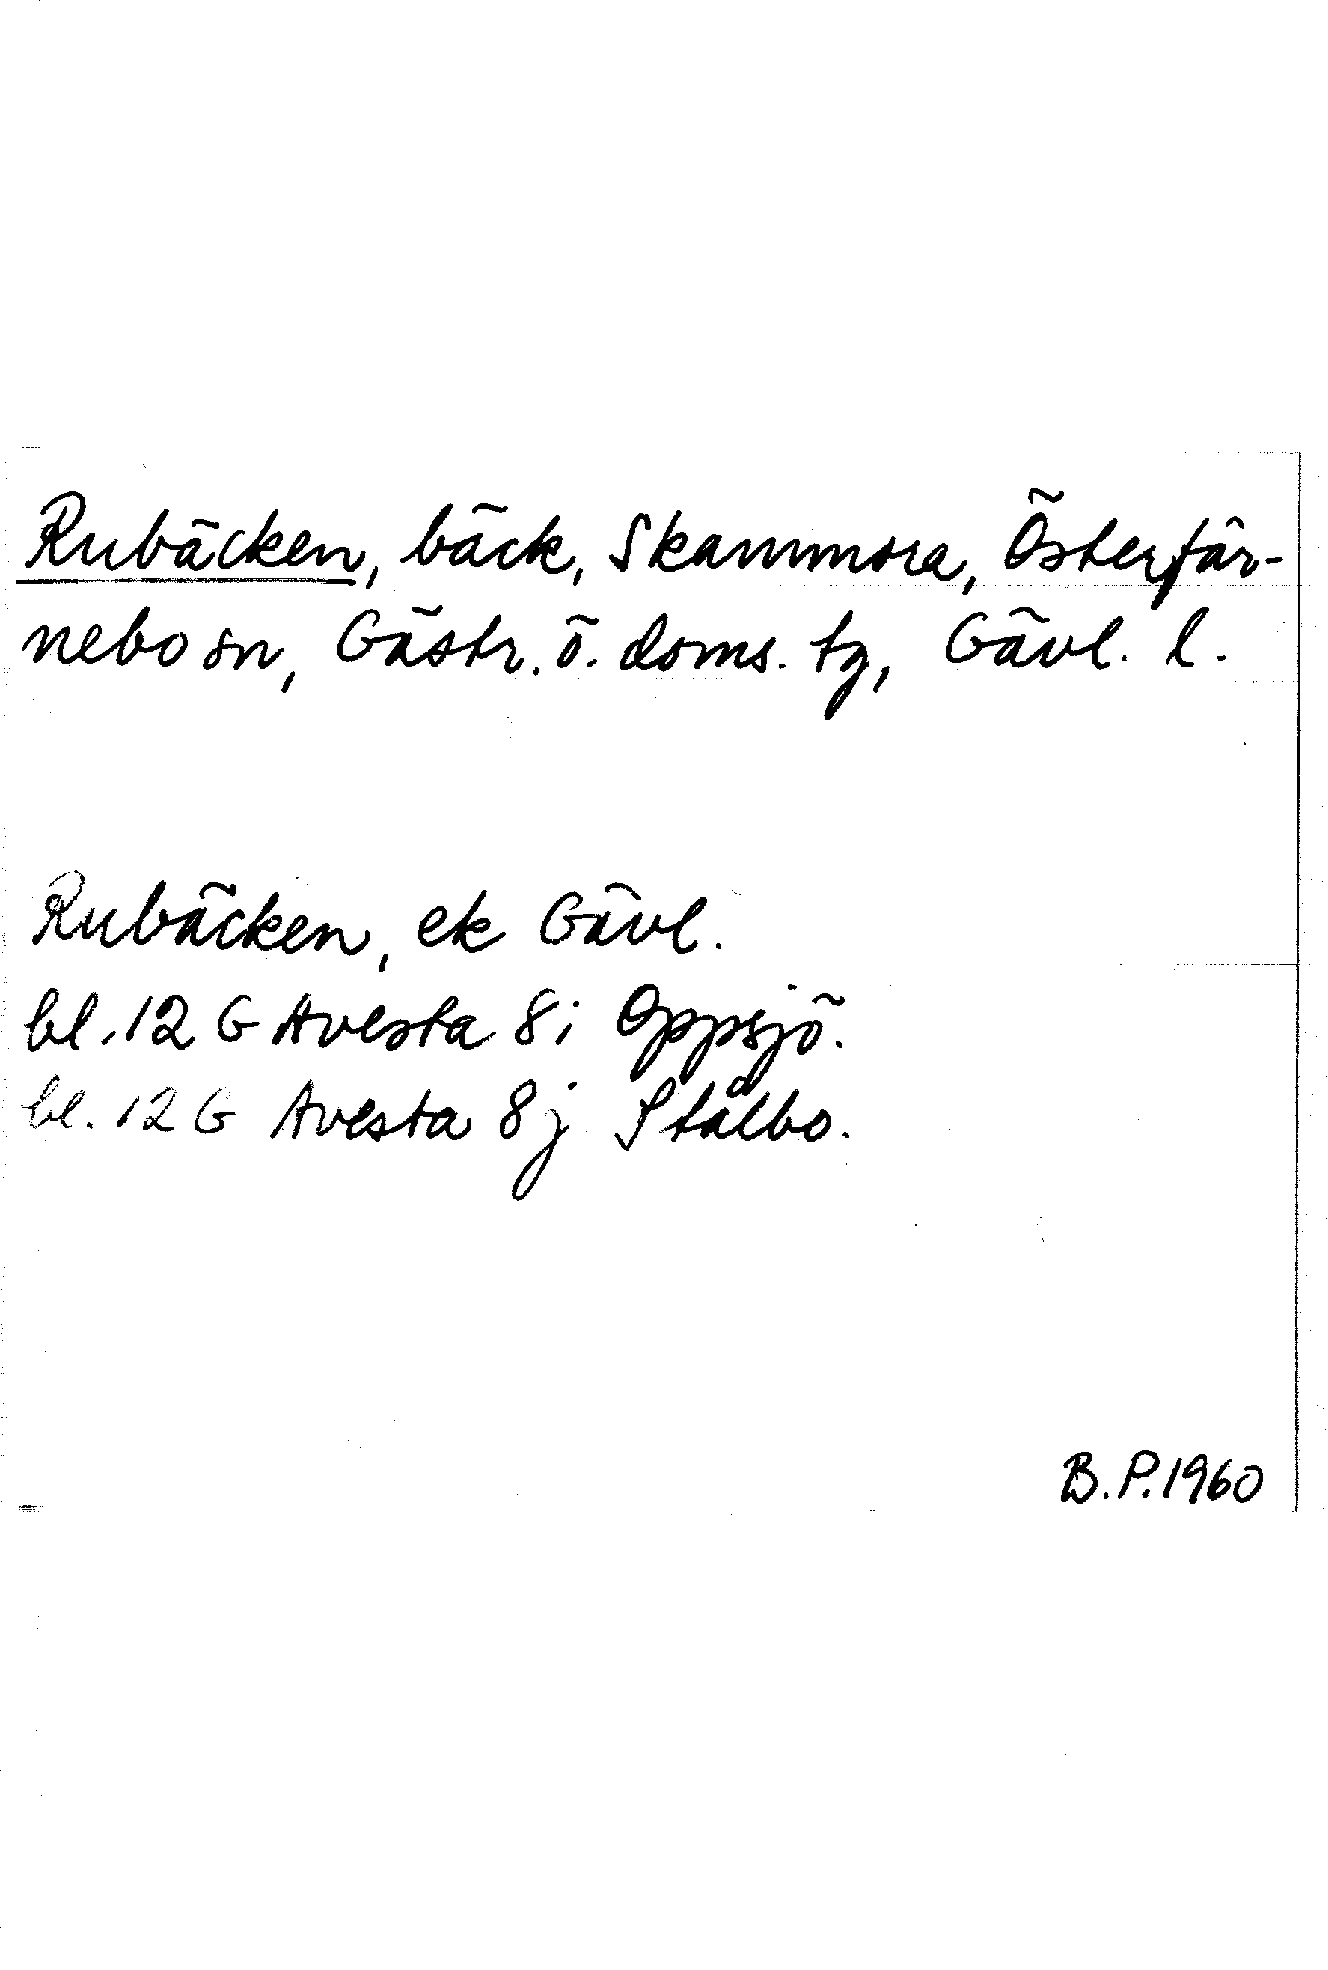 Rubäcken, bäck, Skammora, Österfär-
nebo sn, Gästr. ö. doms. tg, Gävl. l.
Rubäcken, ek Gävl.
bl. 12 G Avesta 8i Oppsjö.
bl. 12 G Avesta 8j Stålbo.
B.P. 1960